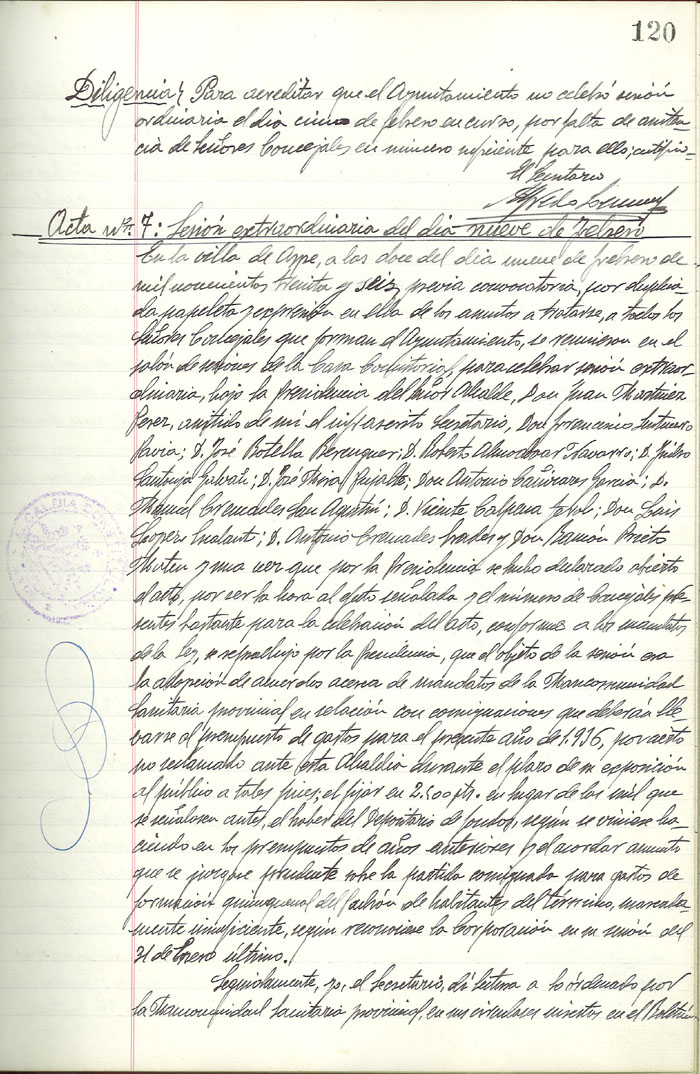 120
Diligencia; Para acreditar que el Ayuntamiento no celebró sesión
ordinaria el dia cinco de febrero en curso, por falta de asisten-
cia de Señores Concejales en número suficiente para ello; certifico=
El Secretario
Acta nº. 7: Sesión extraordinaria del dia nueve de Febrero
En la villa de Aspe, a las doce del dia nueve de febrero de
mil novecientos treinta y seis, previa convocatoria, por duplica-
da papeleta y expresiva en ella de los asuntos a tratarse, a todos los
Señores Concejales que forman el Ayuntamiento, se reunieron en el
salón de sesiones de la Casa Consistorial, para celebrar sesión extraor-
dinaria, bajo la Presidencia del Señor Alcalde, Don Juan Martínez
Perez, asistido de mí el infrascrito Secretario, Don
Pavia; D. José Botella Berenguer; D. Roberto Almodovar Navarro; D.
D. José Mira Pujalte; Don Antonio Cañizares Garcia; D.
Manuel Cremades San Agustín; D. Vicente Calpena; Don Luis
D. Antonio Cremades y Don Ramón Prieto
y una vez que por la Presidencia se hubo declarado abierto
el acto, por ser la hora al efto señalada y el número de Concejales pre-
sentes bastante para la celebración del acto, conforme a los mandatos
de la Ley, se reprodujo por la Presidencia, que el objeto de la sesión era
la adopción de acuerdos acerca de mandatos de la Mancomunidad
Sanitaria provincial en relación con consignaciones que deberán lle-
varse al presupuesto de gastos para el presente año de 1.936, por cierto
no reclamado ante esta Alcaldia durante el plazo de su exposición
al público a tales fines; el fijar en 2.500 pts. en lugar de las mil que
se señalasen antes, el haber del Depositario de fondos, según se viniese ha-
ciendo en los presupuestos de años anteriores y el acordar aumento
que se juzgase prudente sobre la partida consignada para gastos de
formación quinquenal del Padrón de habitantes del término, marcada-
mente insuficiente, según reconociese la Corporación en su sesión del
31 de Enero último.
Seguidamente, yo, el Secretario, dí lectura a lo ordenado por
la Mancomunidad Sanitaria provincial, en sus circulares insertos en el Boletín